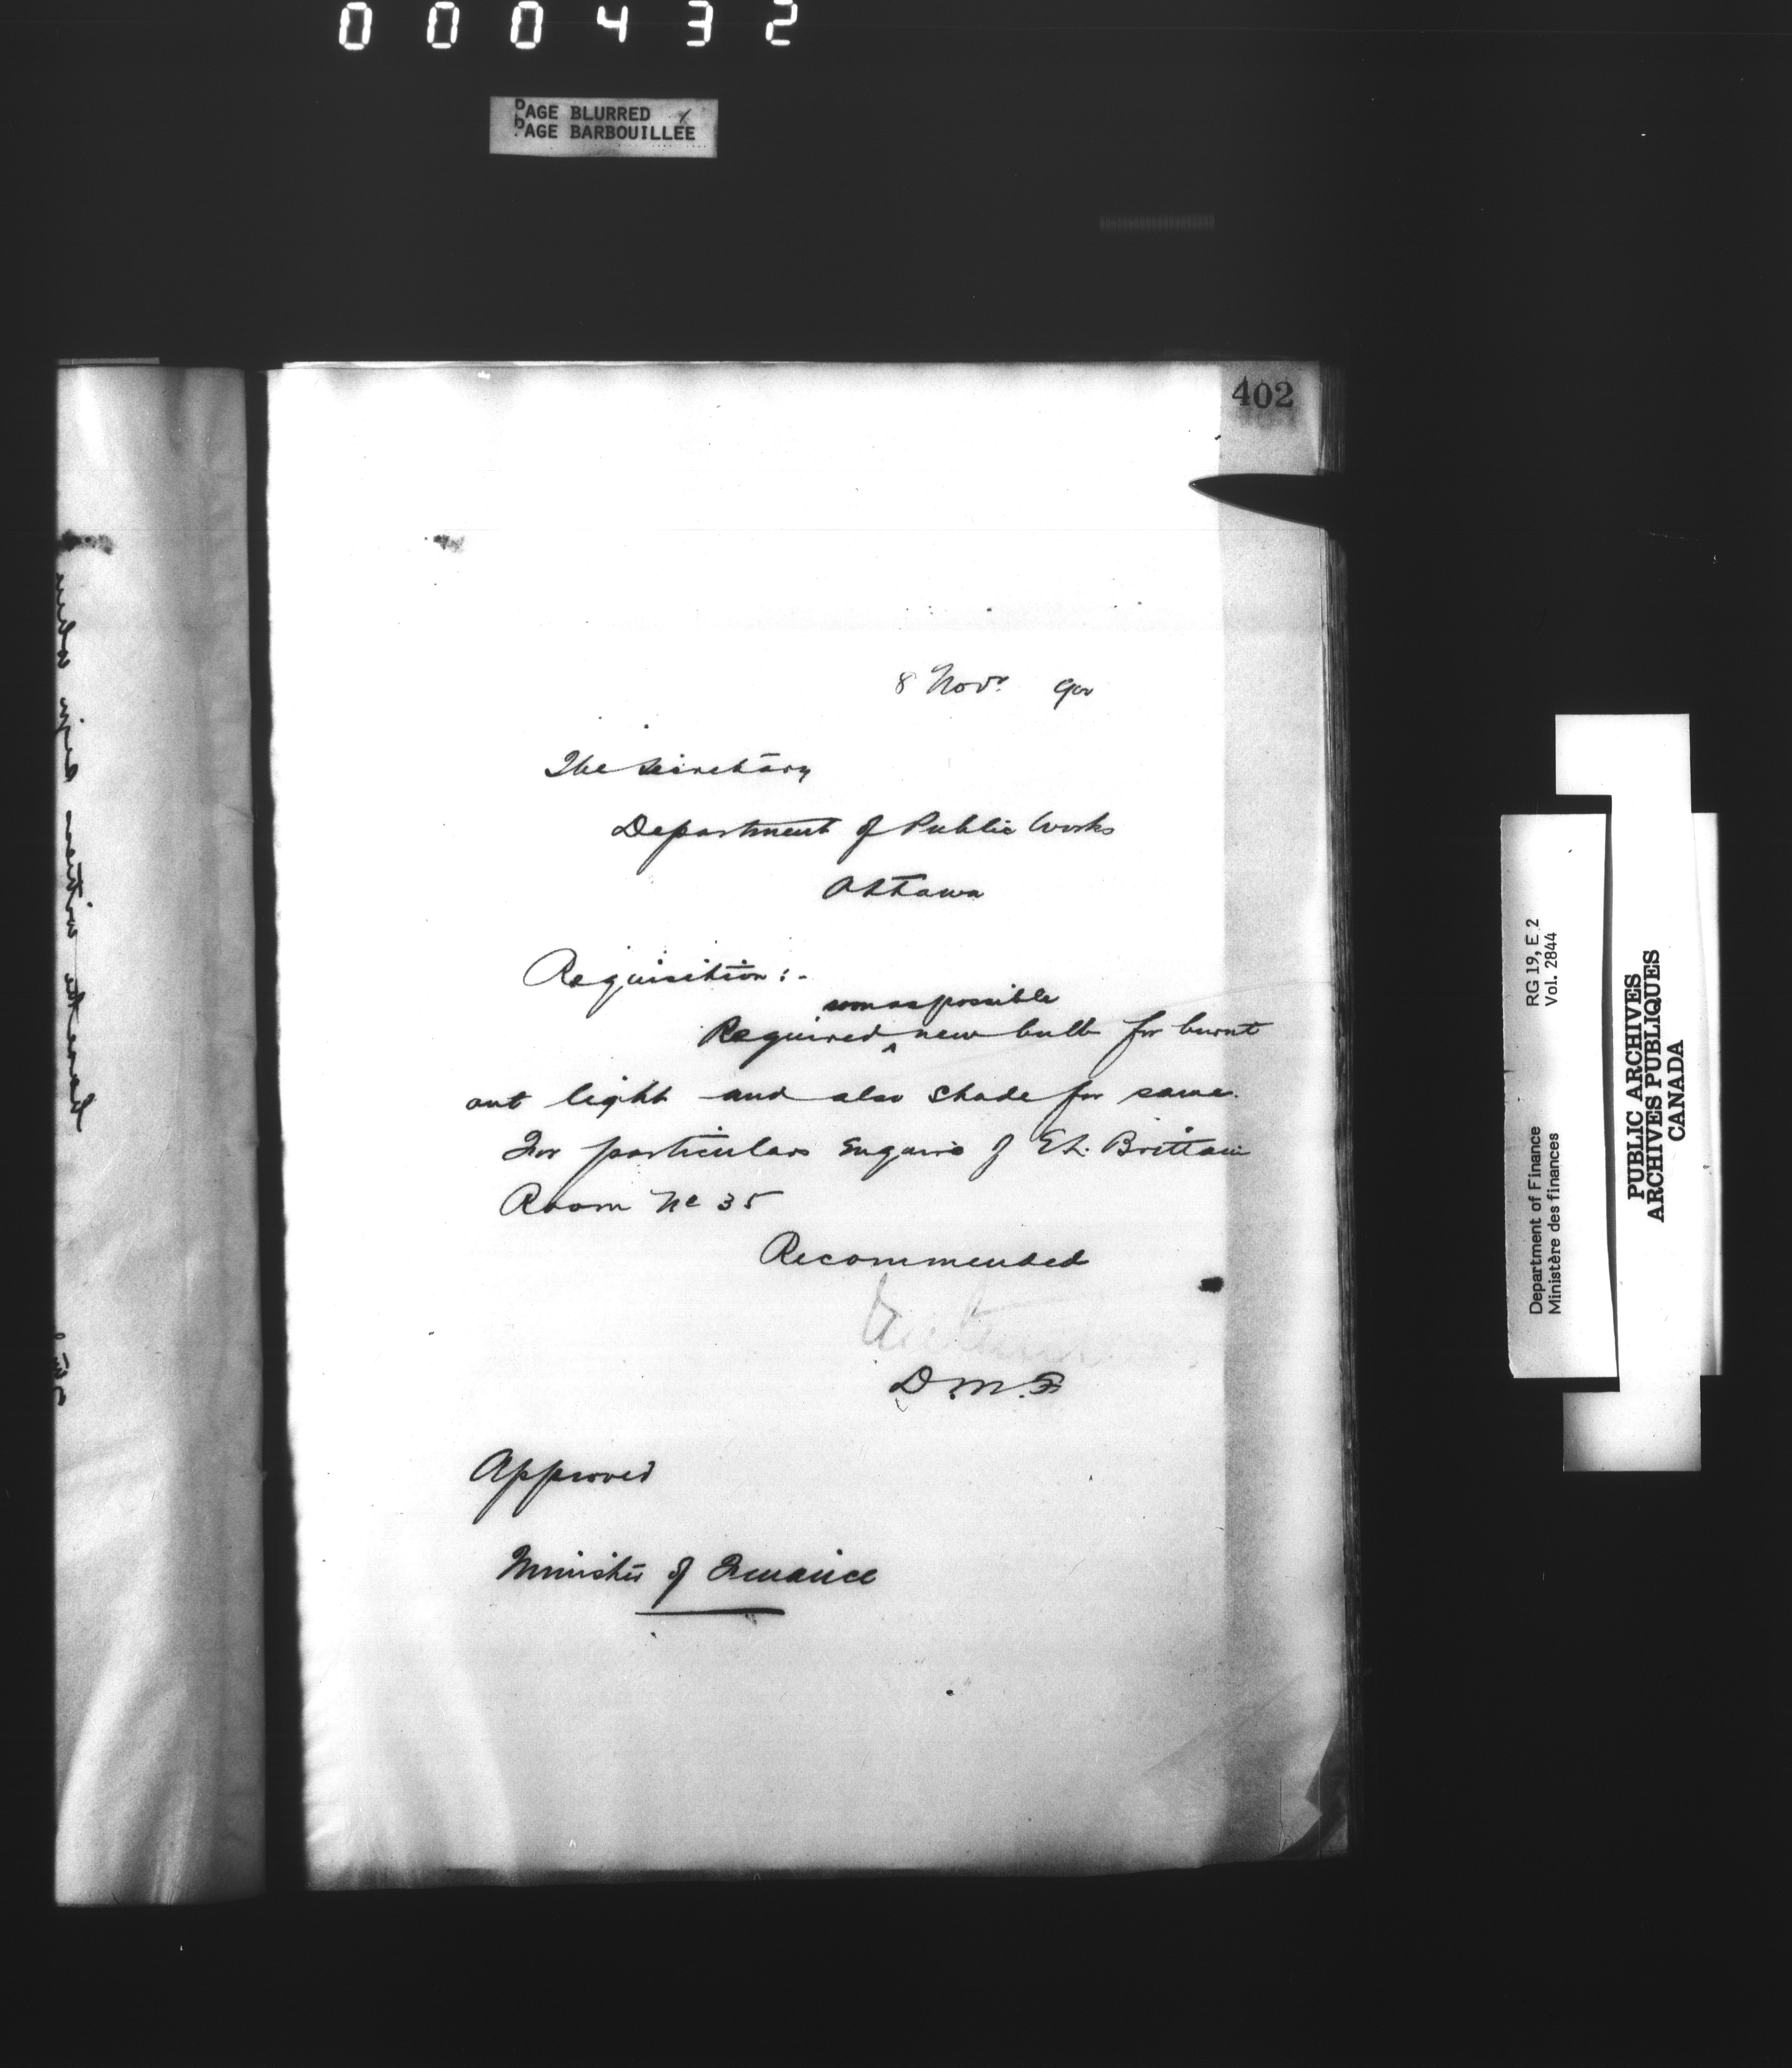 000432
PAGE BLURRED
PAGE BARBOUILLÉE
402
8 Novr. 900
The Secretary
Department of Public Works
Ottawa
Requisition :-
soon as possible
Required ^ new bulb for burnt
out light and also shade for same.
For particulars enquire of E L. Brittain
Room No 35
Recommended
D.M.F.
Approved
Minister of Finance
RG 19, E 2
Vol. 2844
Department of Finance
Ministère des finances
PUBLIC ARCHIVES
ARCHIVES PUBLIQUES
CANADA